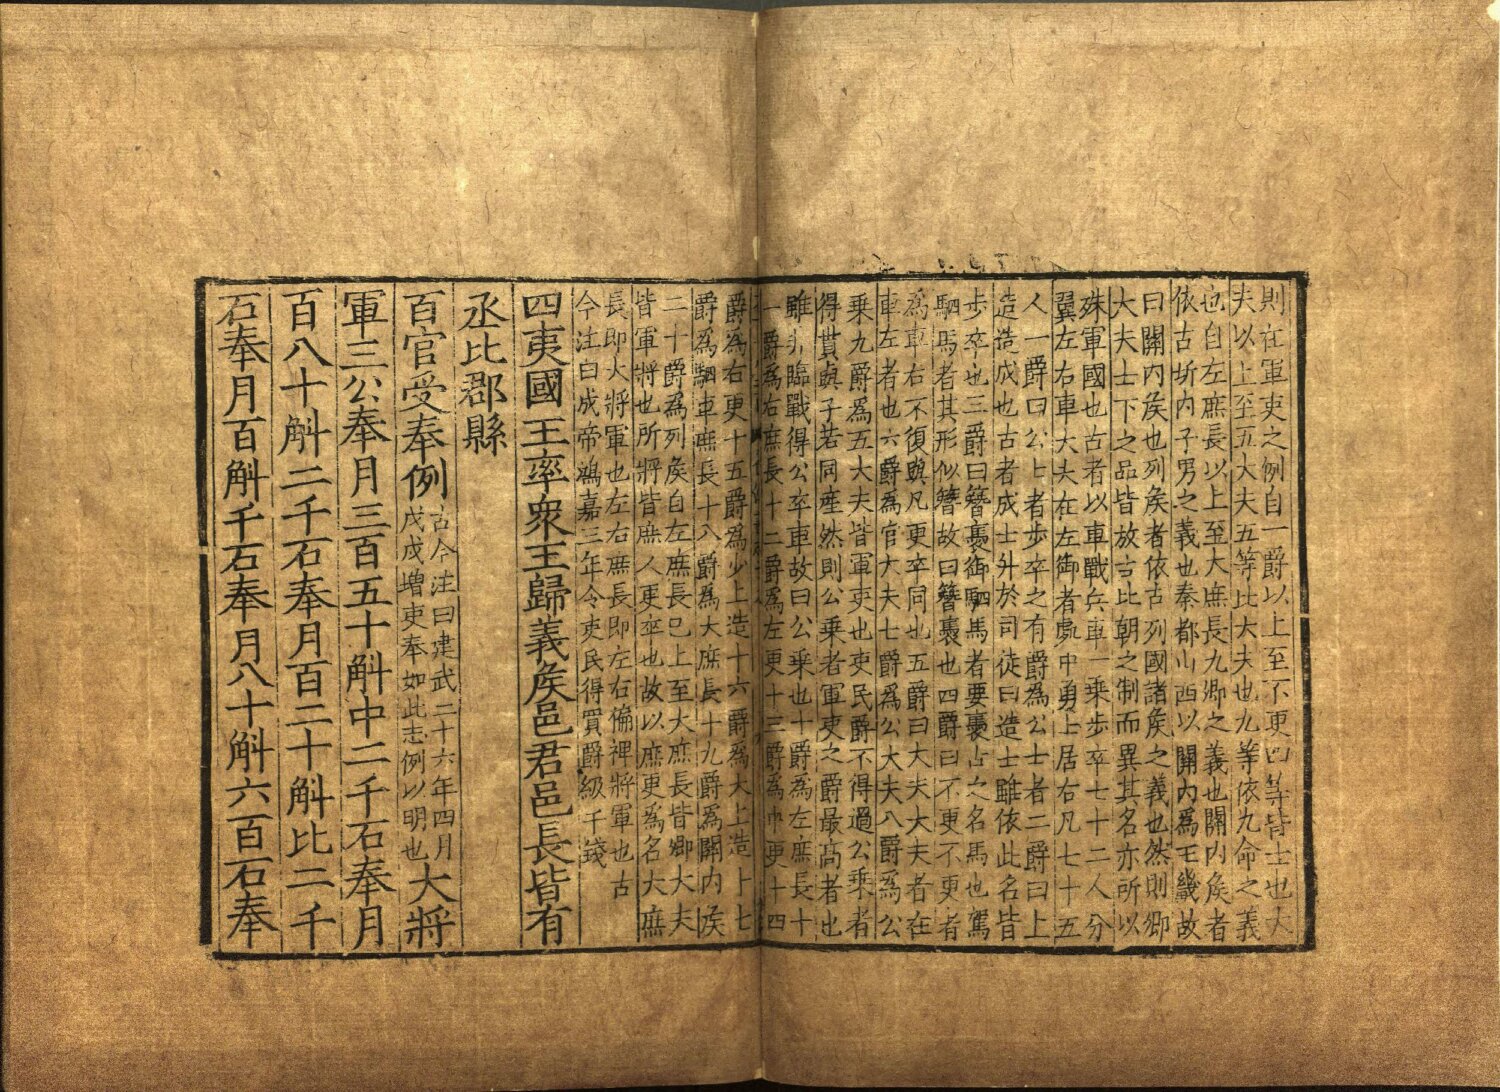 則在軍吏之例自一爵以上至不更四等皆士也大
夫以上至五大夫五等比大夫也九等依九命之義
也自左庶長以上至大庶長九卿之義也關内侯者
依古圻内子男之義也秦都山西以關内爲王畿故
曰關内侯也列侯者依古列國諸侯之義也然則卿
大夫士下之品皆放古比朝之制而異其名亦所以
殊軍國也古者以車戰兵車一乗步卒七十二人分
翼左右車大夫在左御者處中勇士居右凡七十五
人一爵曰公上者步卒之有爵爲公士者二爵曰上
造造成也古者成士升於司徒曰造士雖依此名皆
步卒也三爵曰簪褭御駟馬者要褭古之名馬也駕
駟馬者其形似簪故曰簪褭也四爵曰不更不更者
爲車右不復與凡更卒同也五爵曰大夫大夫者在
車左者也六爵爲官大夫七爵爲公大夫八爵爲公
乗九爵爲五大夫皆軍吏也吏民爵不得過公乗者
得貰與子若同産然則公乗者軍吏之爵最高者也
雖非臨戰得公卒車故曰公乗也十爵爲左庶長十
一爵爲右庶長十二爵爲左更十三爵爲中更十四
爵爲右更十五爵爲少上造十六爵爲大上造十七
爵爲駟車庶長十八爵爲大庶長十九爵爲關内侯
二十爵爲列侯自左庶長已上至大庶長皆卿大夫
皆軍將也所將皆庶人更卒也故以庶更爲名大庶
長即大將軍也左右庶長即左右偏裨將軍也古
今注曰成帝鴻嘉三年令吏民得買爵級千錢
四夷國王率衆王歸義侯邑君邑長皆有
丞比郡縣
百官受奉例古今注曰建武二十六年四月
戊戌増吏奉如此志例以明也大將
軍三公奉月三百五十斛中二千石奉月
百八十斛二千石奉月百二十斛比二千
石奉月百斛千石奉月八十斛六百石奉